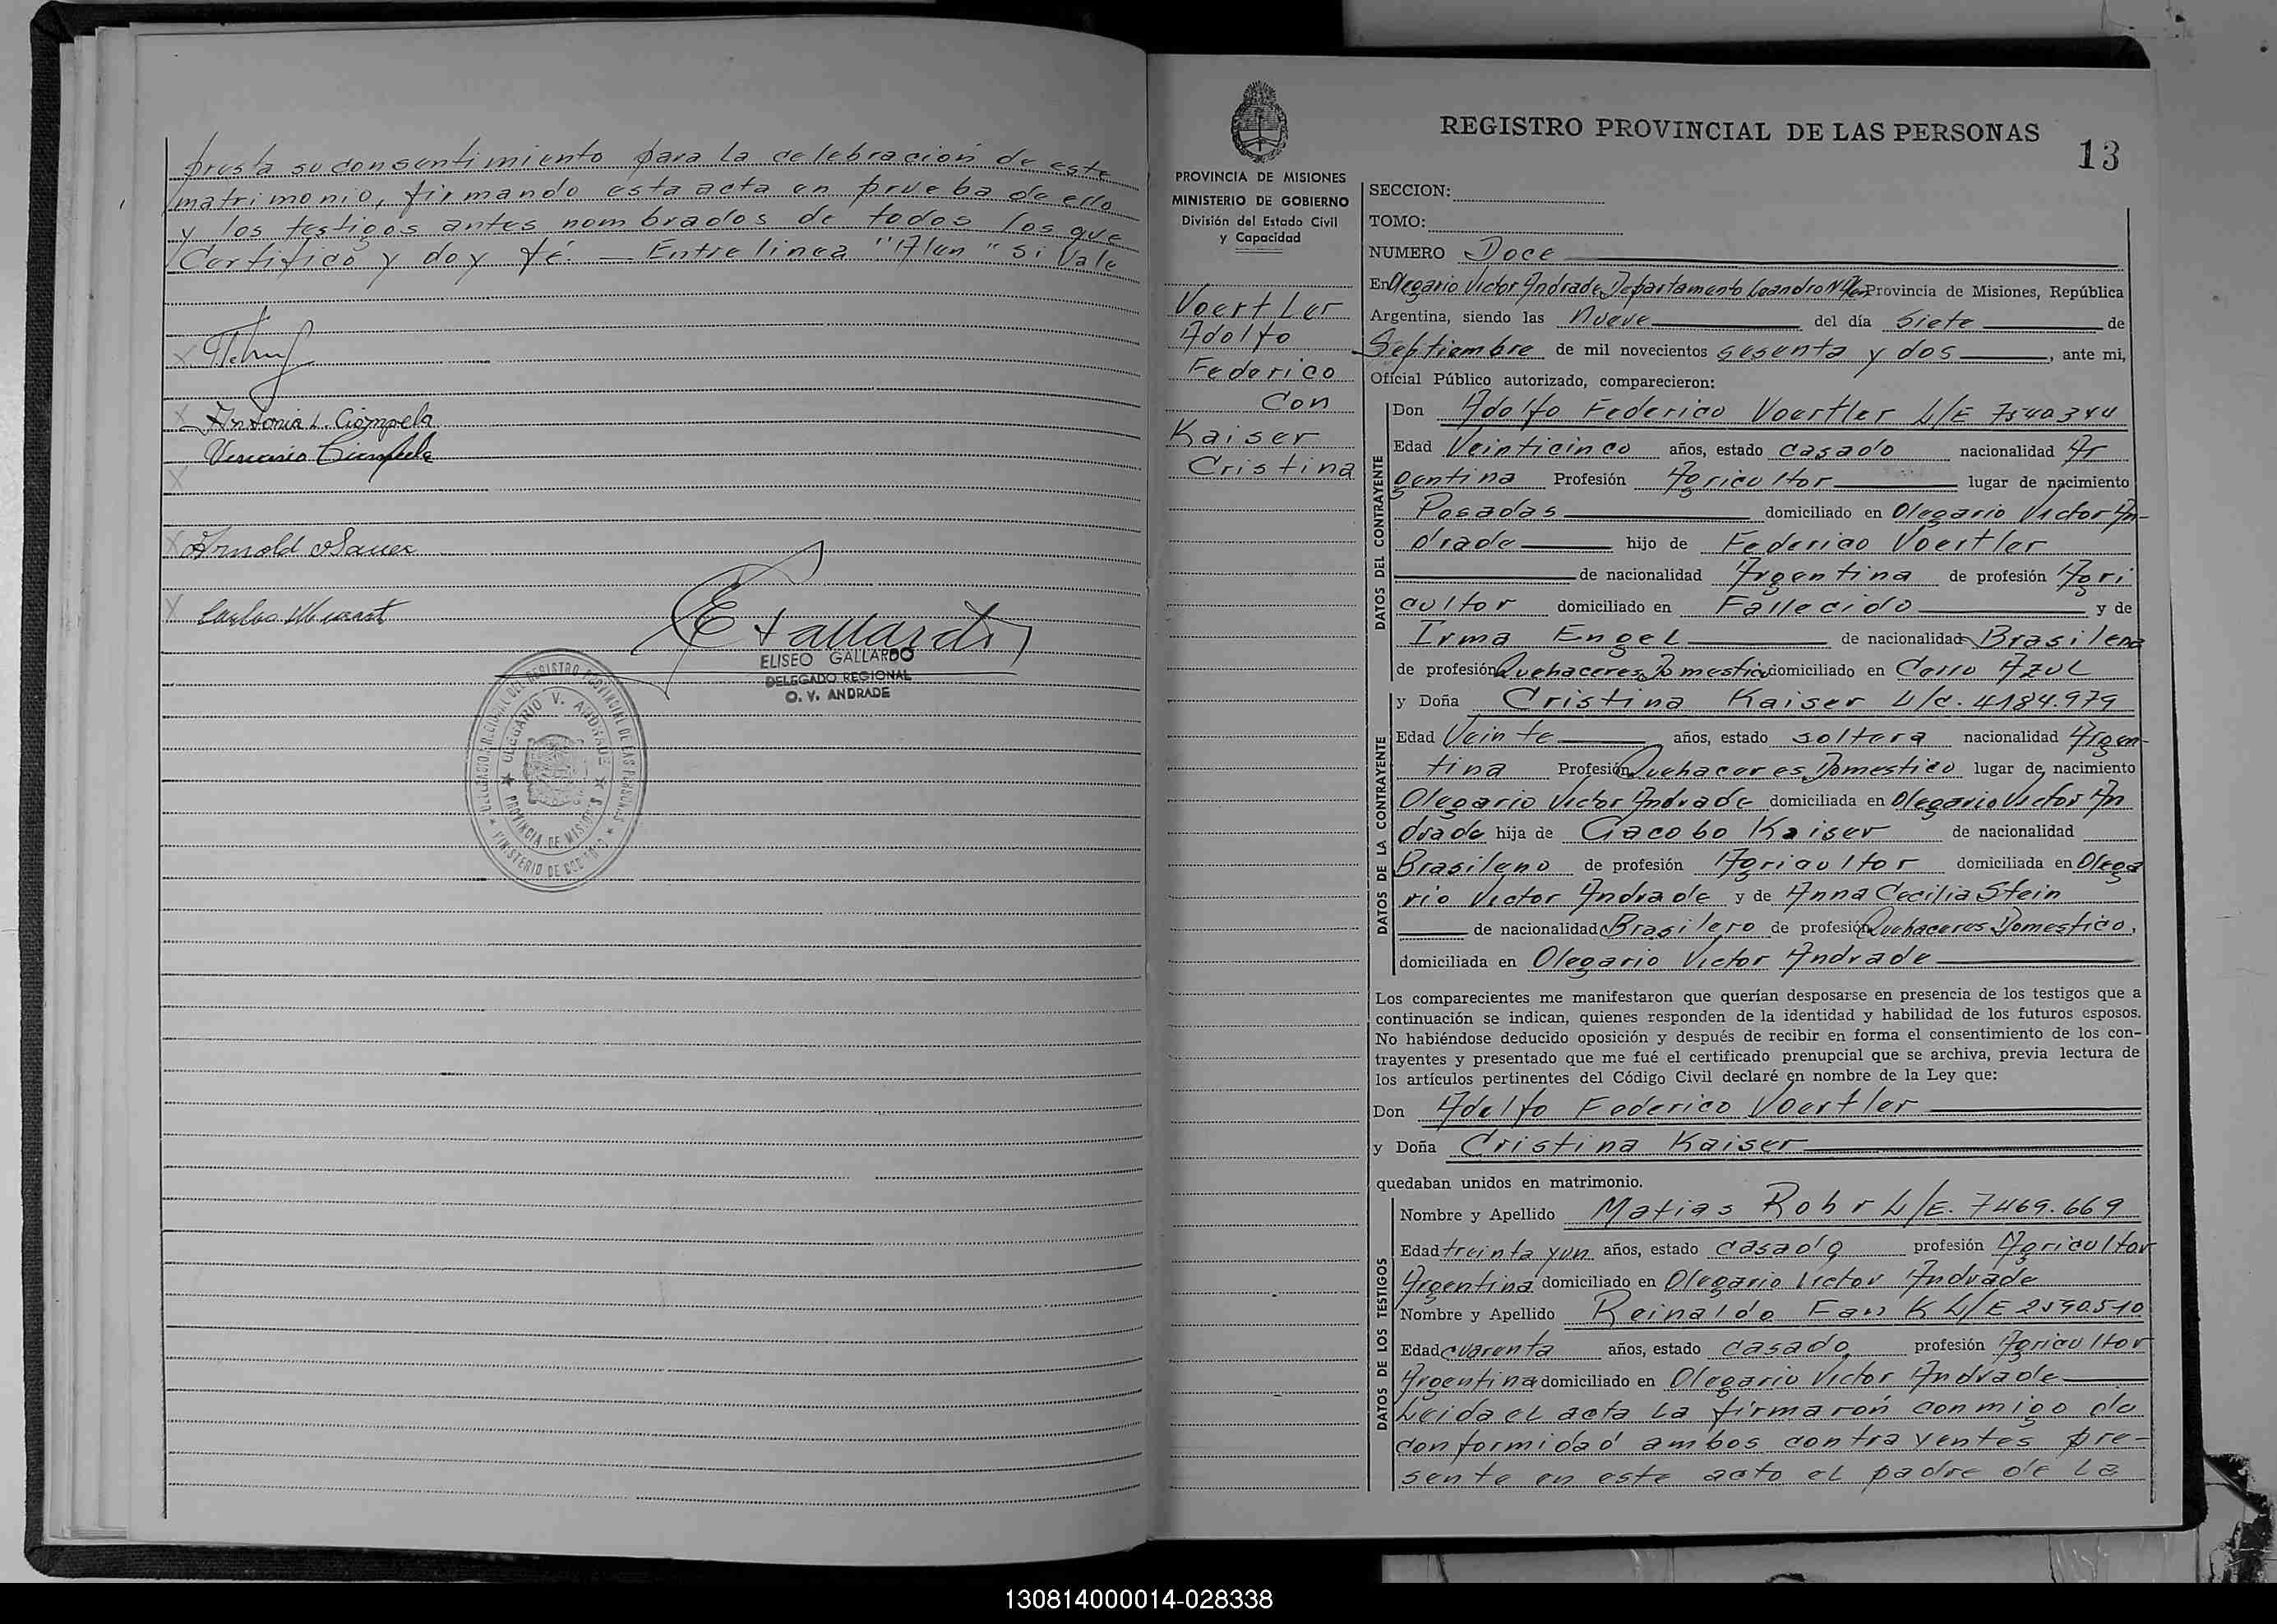 presta su consentimiento para la celebración de este
matrimonio, firmando esta acta en prueba de ello
y los testigos antes nombrados de todos los que
Certifico y doy fé. — Entre linea "Alen" Si Vale
Antonia L. Ciompela
Arnold Sauer
Carlos
ELISEO GALLARDO
DELEGADO REGIONAL
O. V. ANDRADE
DELEGACION REGIONAL DEL REGISTRO PROVINCIAL DE LAS PERSONAS
OLEGARIO V. ANDRADE
PROVINCIA DE MISIONES
MINISTERIO DE GOBIERNO
REGISTRO PROVINCIAL DE LAS PERSONAS
13
PROVINCIA DE MISIONES
MINISTERIO DE GOBIERNO
División del Estado Civil
y Capacidad
Voertler
Adolfo
Federico
Con
Kaiser
Cristina
SECCION:
TOMO:
NUMERO Doce
En Olegario Victor Andrade, Departamento Leandro N. Alen Provincia de Misiones, República
Argentina, siendo las Nueve del día Siete de
Septiembre de mil novecientos sesenta y dos, ante mi,
Oficial Público autorizado, comparecieron:
DATOS DEL CONTRAYENTE
Don Adolfo Federico Voertler L/E 7540344
Edad Veinticinco años, estado casado nacionalidad Ar
gentina Profesión Agricultor lugar de nacimiento
Posadas domiciliado en Olegario Victor An-
drade hijo de Federico Voertler
de nacionalidad Argentina de profesión Agri
cultor domiciliado en Fallecido y de
Irma Engel de nacionalidad Brasilena
de profesión Quehaceres Domestico domiciliado en Cerro Azul
DATOS DE LA CONTRAYENTE
y Doña Cristina Kaiser L/c. 4184.979
Edad Veinte años, estado soltera nacionalidad Argen-
tina Profesión Quehaceres Domestico lugar de nacimiento
Olegario Victor Andrade domiciliada en Olegario Victor An
drade hija de Gacobo Kaiser de nacionalidad
Brasileno de profesión Agricultor domiciliada en Olega
rio Victor Andrade y de Anna Cecilia Stein
de nacionalidad Brasilero de profesión Quehaceres Domestico,
domiciliada en Olegario Victor Andrade
Los comparecientes me manifestaron que querían desposarse en presencia de los testigos que a
continuación se indican, quienes responden de la identidad y habilidad de los futuros esposos.
No habiéndose deducido oposición y después de recibir en forma el consentimiento de los con-
trayentes y presentado que me fué el certificado prenupcial que se archiva, previa lectura de
los artículos pertinentes del Código Civil declaré en nombre de la Ley que:
Don Adolfo Federico Voertler
y Doña Cristina Kaiser
quedaban unidos en matrimonio.
DATOS DE LOS TESTIGOS
Nombre y Apellido Matias Rohr L/E. 7469.669
Edad treinta y un años, estado casado profesión Agricultor
Argentina domiciliado en Olegario Victor Andrade
Nombre y Apellido Reinaldo Fank L/E 2590510
Edad cuarenta años, estado casado profesión Agricultor
Argentina domiciliado en Olegario Victor Andrade
Leida el acta la firmarón conmigo de
conformidad ambos contrayentes pre-
sente en este acto el padre de la
130814000014-028338